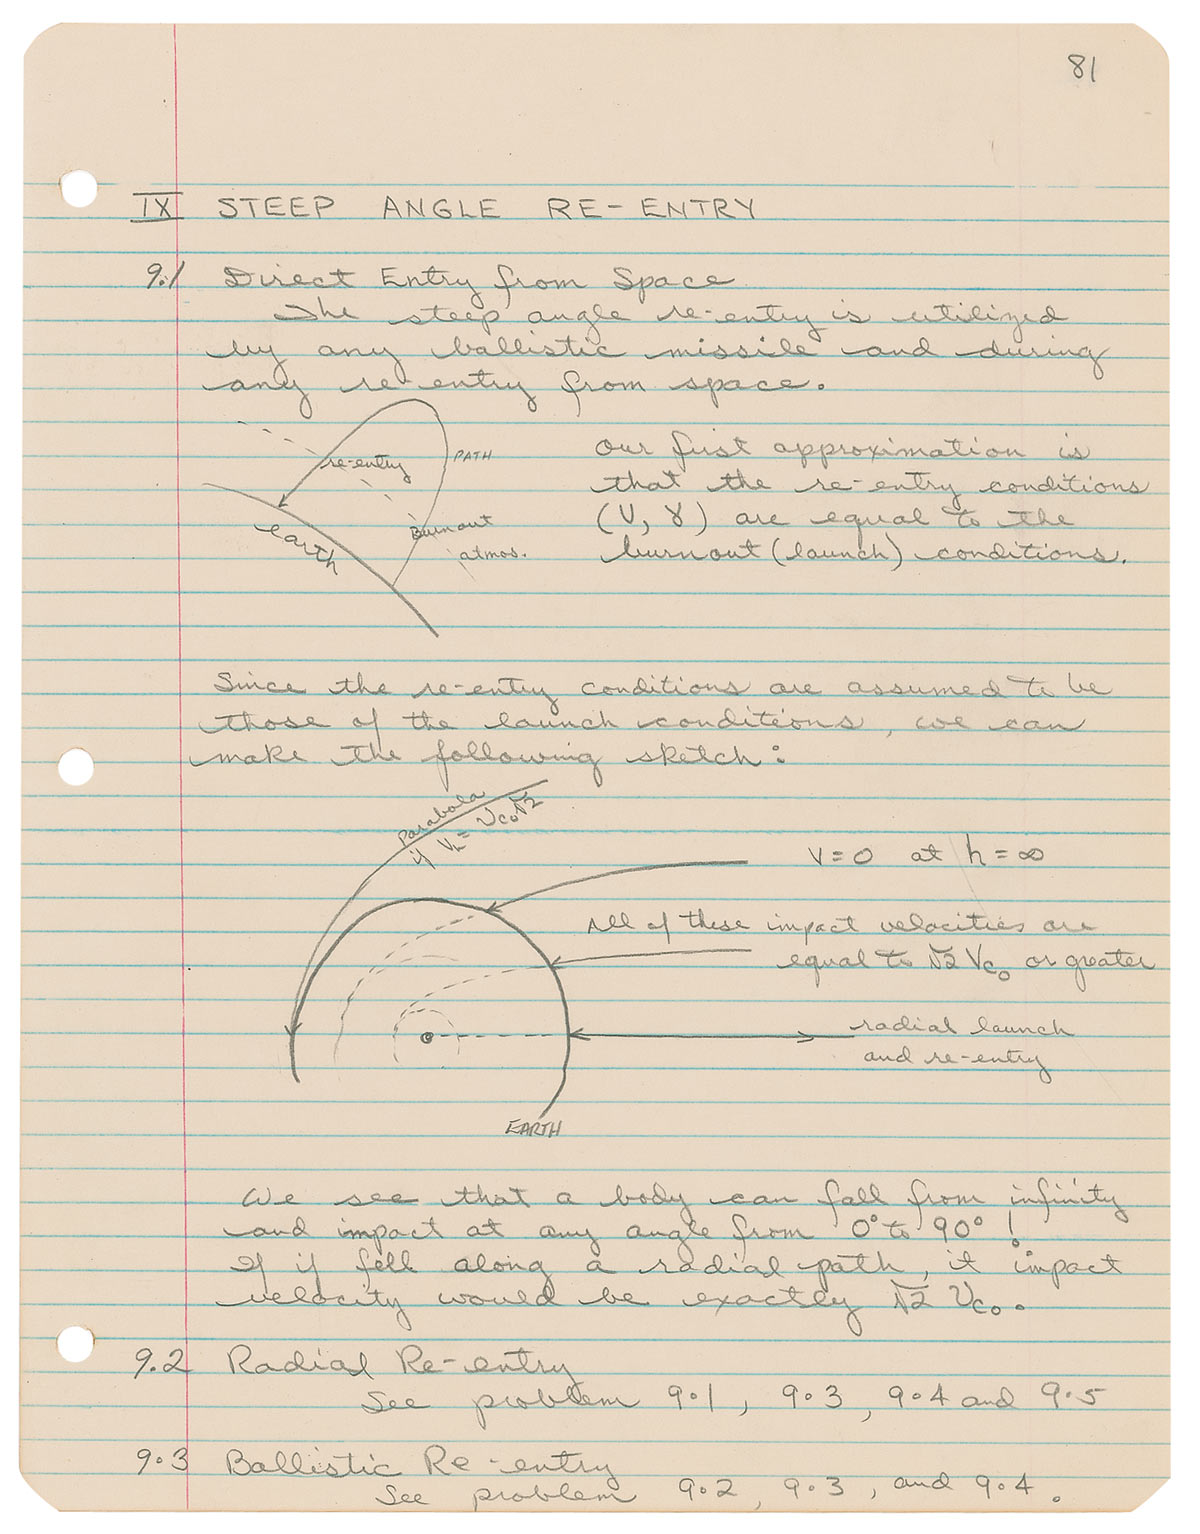 81
IX STEEP ANGLE RE-ENTRY
9.1 Direct Entry from Space
The steep angle re-entry is utilized
by any ballistic missile and during
any re-entry from space.
re-entry
PATH
earth
Burnout
atmos.
Our first approximation is
that the re-entry conditions
(V, γ) are equal to the
burnout (launch) conditions.
Since the re-entry conditions are assumed to be
those of the launch conditions, we can
make the following sketch:
Parabola
if Vh = Vco√2
V=0 at h=∞
All of these impact velocities are
equal to √2 Vco or greater
radial launch
and re-entry
EARTH
We see that a body can fall from infinity
and impact at any angle from 0° to 90°!
If if fell along a radial path, it impact
velocity would be exactly √2 Vco.
9.2 Radial Re-entry
See problem 9.1, 9.3, 9.4 and 9.5
9.3 Ballistic Re-entry
See problem 9.2, 9.3, and 9.4.